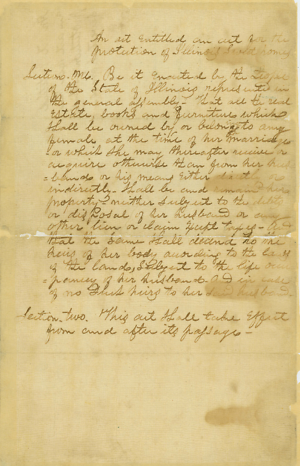 An act entitled an act for the
Protection of Illinois
Section. One. Be it enacted by the People
of the State of Illinois represented in
the general assembly- That all the real
Estate, books and furniture which
Shall be owned by or belong to any
female at the time of her marriage
or which She may thereafter
acquire otherwise than from her
husbands or his means Either directly or
indirectly. Shall be and remain her
property, & neither Subject to the debts
or disposal of her husband or any
other lien or claim Except taxes - And
that the Same Shall decend to the
heirs of her body according to the laws
of the land, Subject to the life
of her husband And in case
of no Such heirs to her husband
Section Two. This act Shall take Effect
from and after its passage -